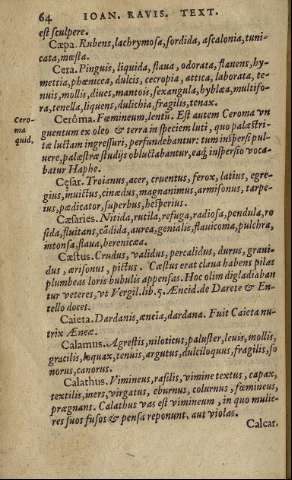 64 IOAN. RAVIS. TEXT.
est sculpere.
Cæpa. Rubens, lachrymosa, sordida, ascalonia, tuni-
cata, mœsta.
Cera. Pinguis, liquida, flaua, odorata, flauens, hy-
mettia, phœnicea, dulcis, cecropia, attica, laborata, te-
nuis, mollis, diues, mantois, sexangula, hyblæa, multifo-
ra, tenella, liquens, dulichia, fragilis, tenax.
Cerôma. Fœmineum, lentũ. Est autem Ceroma vn
Cero-
ma
quid.
guentum ex oleo & terra in speciem luti, quo palæstri-
tæ luctam ingressuri, perfundebantur: tum inspersi pul-
uere, palæstræ studijs obluctabantur, eaq́; inspersio voca-
batur Haphe.
Cęsar. Troianus, acer, cruentus, ferox, latius, egre-
gius, inuictus, cinædus, magnanimus, armisonus, tarpe-
ius, pædicator, superbus, hesperius.
Cæsaries. Nitida, rutila, refuga, radiosa, pendula, ro
sida, fluitans, cãdida, aurea, genialis, flauicoma, pulchra,
intonsa, flaua, berenicæa.
Cæstus. Crudus, validus, percalidus, durus, grani-
dus, arisonus, pictus. Cæstus erat claua habens pilas
plumbeas loris bubulis appensas. Hoc olim digladiaban
tur veteres, vt Vergil. lib. 5. Æneid. de Darete & En-
tello docet.
Caieta. Dardanis, æneia, dardana. Fuit Caieta nu-
trix Æneæ.
Calamus. Agrestis, niloticus, paluster, leuis, mollis,
gracilis, loquax, tenuis, argutus, dulciloquus, fragilis, so
norus, canorus.
Calathus. Vimineus, rasilis, vimine textus, capax,
textilis, iners, virgatus, eburnus, colurnus, fœmineus,
prægnans. Calathus vas est vimineum, in quo mulie-
res suos fusos & pensa reponunt, aut violas.
Calcar.